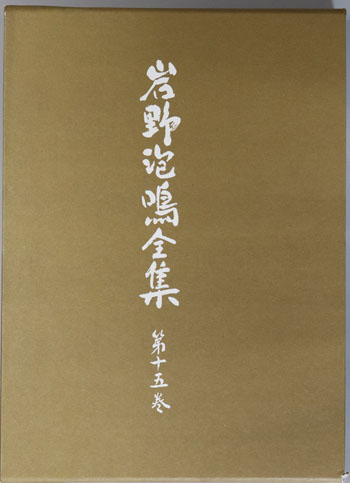 岩野泡鳴全集
第十五巻